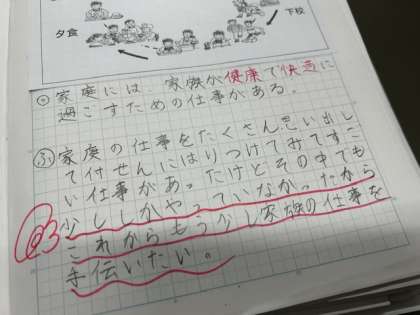 夕食
下校
家庭には、家族が健康で快適に
過ごすための仕事がある。
ふ 家庭の仕事をたくさん思い出し
て付せんにはりつけてみてすご
い仕事があった。けどその中でも
少ししかやっていなかったから
これからもう少し家族の仕事を
手伝いたい。